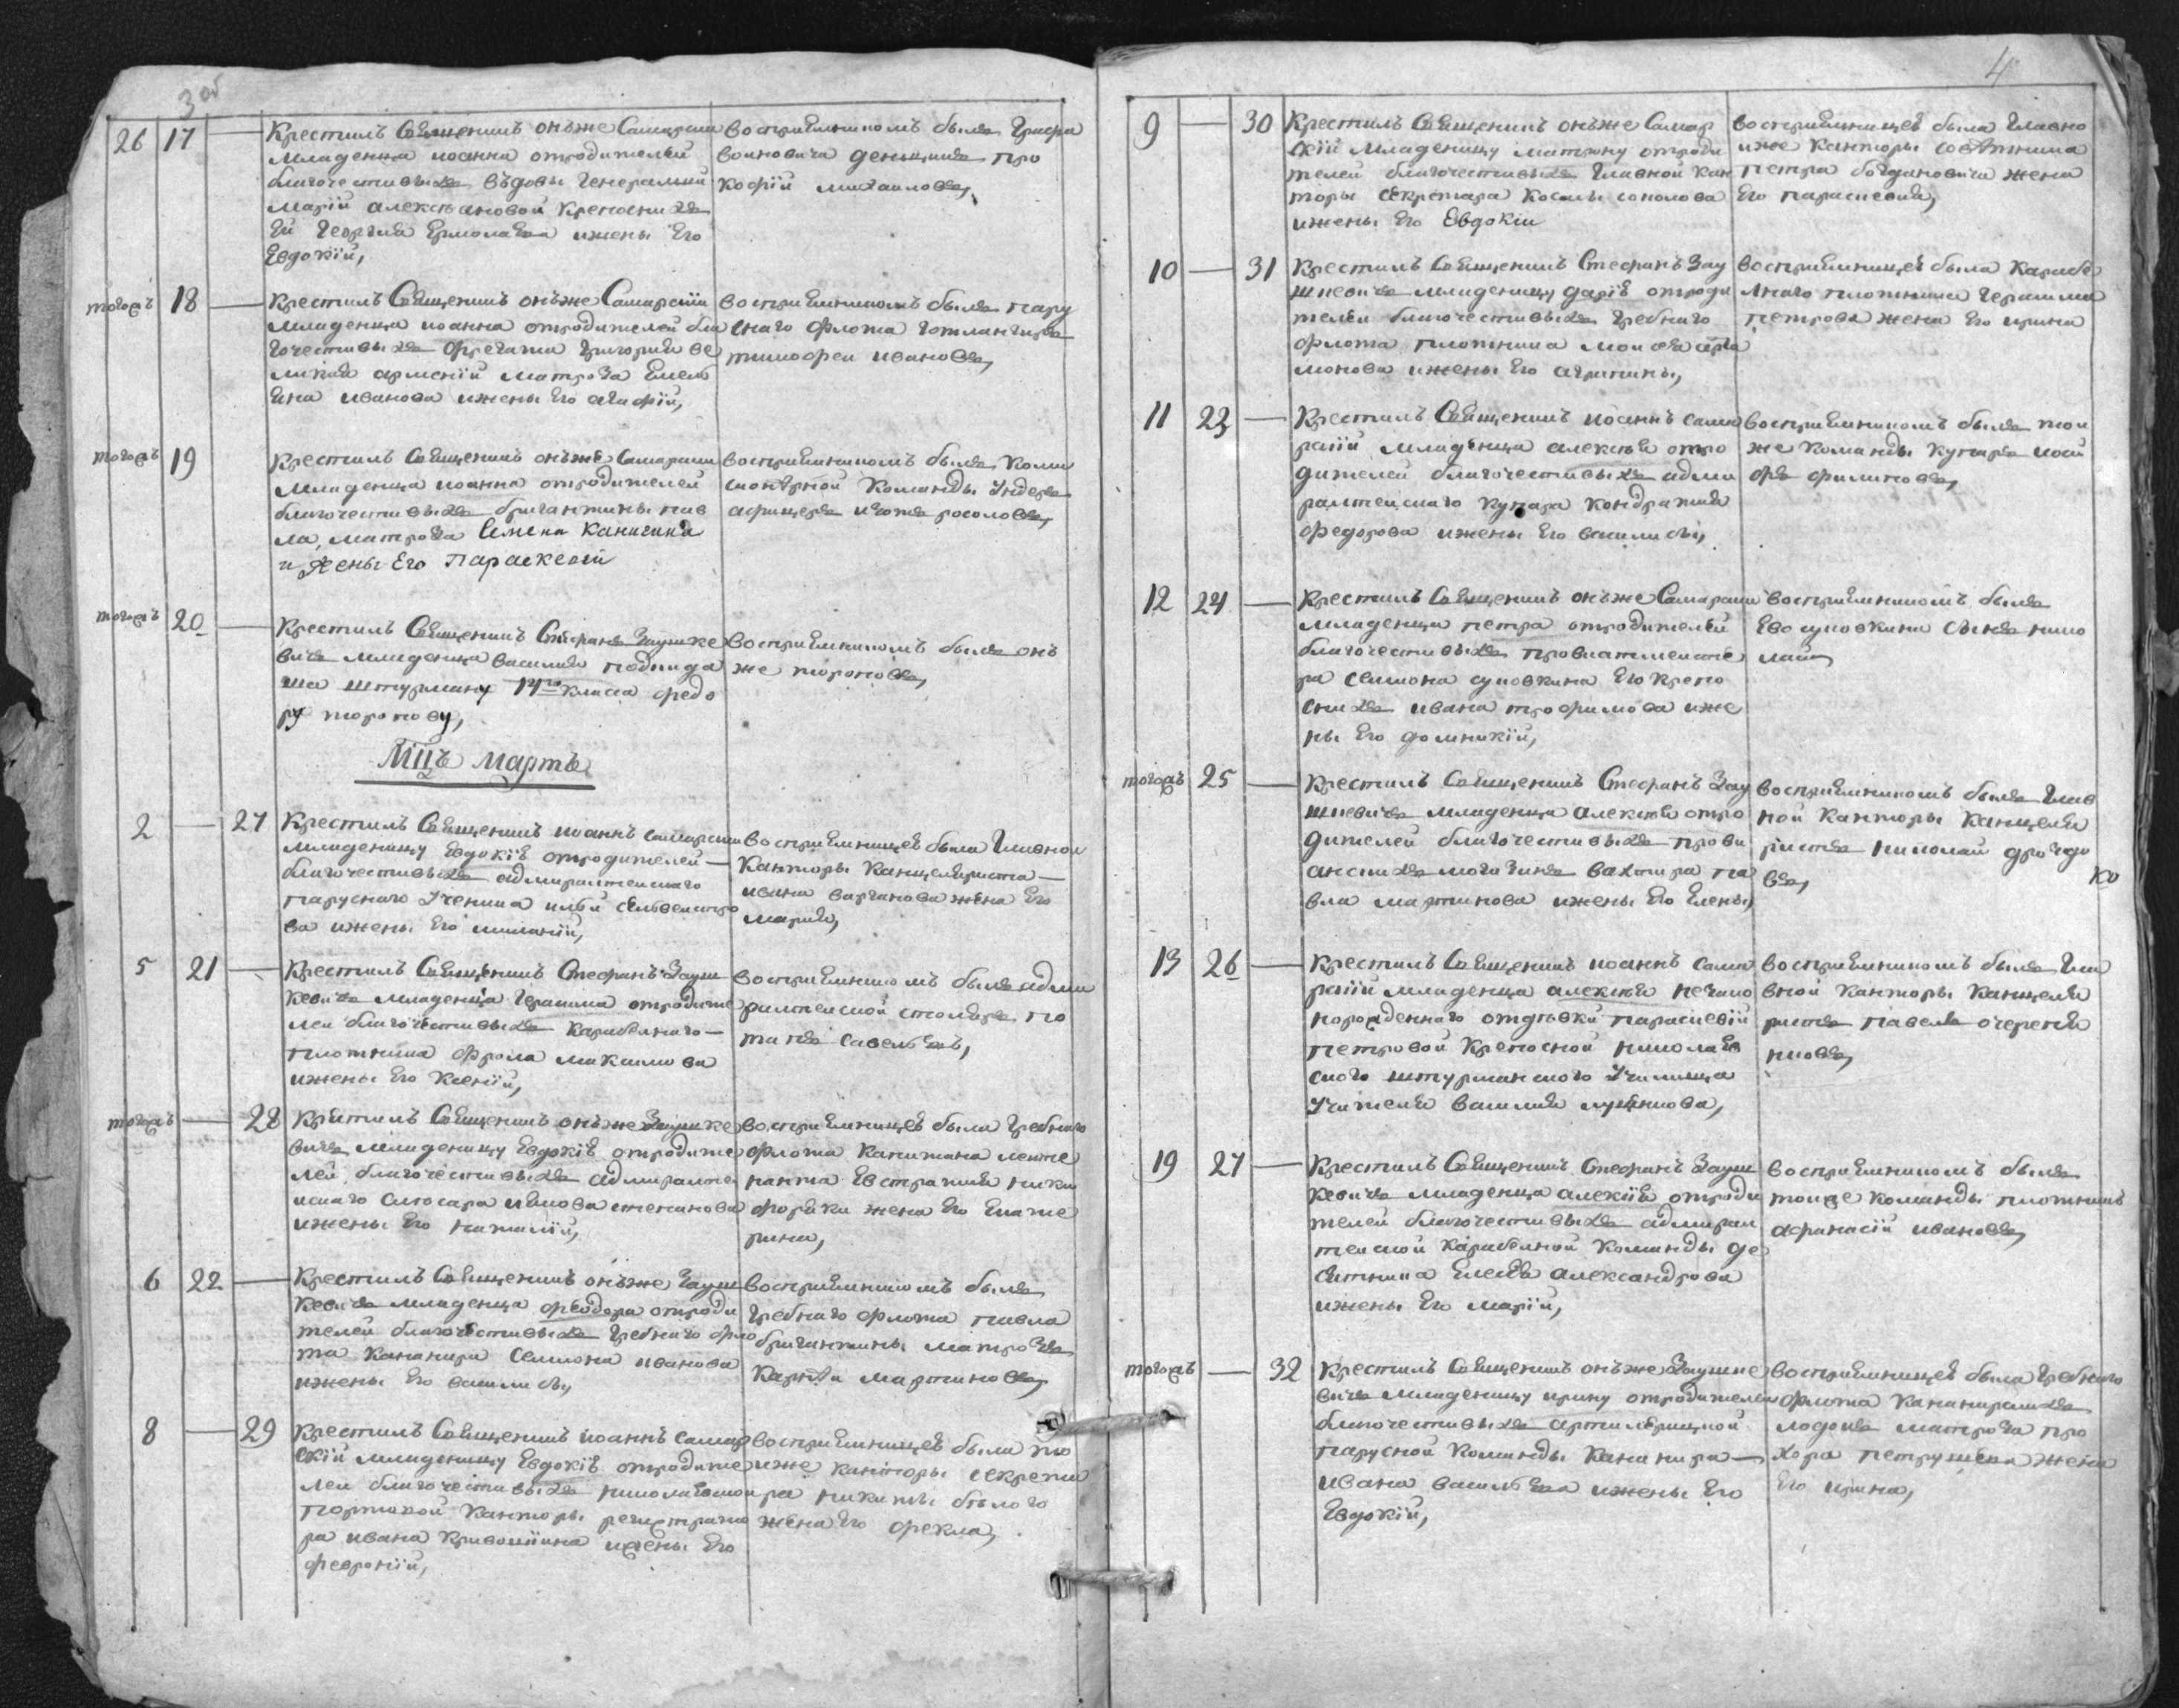 3 об
26 17 — Крестилъ Священникъ онъже Самарски
младенца иоанна отродителей
благочестивыхъ въдовы генеральши
Марiи алексiановой крепосныхъ
Ей Георгия Ермолаева ижены Его
Евдокiи,
воспрiемникомъ былъ Графа
воиновича деньщикъ про
кофiй михаиловъ,
тогожъ 18 — Крестилъ Священникъ онъже Самарскiи
младенца иоанна отродителей бла
гочестивыхъ фрегата Григория ве
ликия арменiи матроза Емель
яна иванова ижены Его агафiи,
воспрiемникомъ былъ пару
снаго флота
тимофеи ивановъ,
тогожъ 19 Крестилъ Священникъ онъже Самарски
младенца иоанна отродителей
благочестивыхъ бригантины пав
ла, матроза Семена Каничина
и жены Его Параскевiи
воспрiемникомъ былъ Коми
сионерной Команды Ундеръ
афицеръ
тогожъ 20 — Крестилъ Священникъ Стефанъ Заушке
вичъ младенца василия подкида
ша штурману 14го класа федо
ру торопову,
воспрiемникомъ былъ онъ
же тороповъ,
Мцъ Мартъ
2 — 27 Крестилъ Священникъ иоаннъ самарски
младеницу Евдокiю отродителей —
благочестивыхъ адмиралтеискаго
паруснаго Ученика ильи сельвестро
ва ижены Его миланiи,
воспрiемницею была Главнои
Канторы Канцеляриста —
ивана варганова жена Его
мария,
5 21 — Крестилъ Священникъ Стефанъ Зауш
кевичъ младенца Герасима отродите
леи благочестивыхъ Карабелнаго —
плотника фрола макимова
ижены Его Ксенiи,
воспрiемникомъ былъ адми
ралтеискои столяръ по
тапъ савельевъ,
тогожъ — 28 Крестилъ Священникъ онъже Заушке
вичъ младеницу Евдокiю отродите
лей благочестивыхъ адмиралте
искаго слюсара иякова степанова
ижены Его наталiи,
воспрiемницею была Гребнаго
флота Капитана леите
нанта Евстратия ники
форäки жена Его Екате
рина,
6 22 — Крестилъ Священникъ онъже Зауш
кевичъ младенца феодора отроди
телей благочестивыхъ Гребнаго фло
та Канонира Семиона иванова
ижены Его василисы,
воспрiемникомъ былъ
Гребнаго флота павла
бригантины матрозъ
Карпъи мартиновъ,
8 — 29 Крестилъ Священникъ иоаннъ самар
скiй младеницу Евдокiю отродите
леи благочестивыхъ николаевской
портовой Канторы регистрато
ра ивана Кривошiина ижены Его
февронiи,
воспрiемницею была то
иже канторы секрета
ра никиты белого
жена Его фекла,
4
9 — 30 Крестилъ Священникъ онъже Самар
скiй младеницу матрону отроди
телей благочестивыхъ Главной Кан
торы секретара Косьмы соколова
ижены Его Евдокiи
воспрiемницею была Главно
иже Канторы советника
петра богдановича жена
Его параскевия,
10 — 31 Крестилъ Священникъ Стефанъ Зау
шкевичъ младеницу дарiю отроди
телей благочестивыхъ Гребнаго
флота плотника
монова ижены Его агрипины,
воспрiемницею была Карабе
лнаго плотника Герасима
петрова жена Его ирина
11 23 — Крестилъ Священникъ иоаннъ сама
рскiй младенца алексия отро
дителей благочестивыхъ адми
ралтеискаго Купара Кондратия
федорова ижены Его василисы,
воспрiемникомъ былъ тои
же Команды Купаръ иоси
фъ филиповъ,
12 24 — Крестилъ Священникъ онъже Самарски
младенца петра отродителей
благочестивыхъ провиатмеисте
ра Семиона суковкина Его крепо
сныхъ ивана трофимова иже
ны Его домникiи,
воспрiемникомъ былъ
Ево суковкина сынъ нико
лаи,
тогожъ 25 — Крестилъ Священникъ Стефанъ Зау
шкевичъ младенца алексия отро
дителей благочестивыхъ прови
анскихъ могазинъ вахтира па
вла мартинова ижены Его Елены,
воспрiемникомъ былъ Глав
ной Канторы Канцеля
ристъ николаи дрозд
въ,
ко
13 26 — Крестилъ Священникъ иоаннъ сама
рскiй младенца алексия незако
порожденнаго отдевки параскевiи
петровой Крепосной николаев
скаго штурманскаго Училища
Учителя василия
воспрiемникомъ былъ Гла
вной Канторы Канцеля
ристъ павелъ
19 27 — Крестилъ Священникъ Стефанъ Зауш
кевичъ младенца алексiя отроди
телей благочестивыхъ адмирал
теискои Карабелной Команды де
сятника Елесея александрова
ижены Его марiи,
воспрiемникомъ былъ
тоиже команды плотникъ
афанасiй ивановъ,
тогожъ — 32 Крестилъ Священникъ онъже Заушке
вичъ младеницу ирину отродителеи
благочестивыхъ артилерицкой
парусной Команды Канонира —
ивана васильева ижены Его
Евдокiи,
воспрiемницею была Гребнаго
флота Канонирскихъ
лодокъ матроза про
хора петрушека жена
Его ирина,